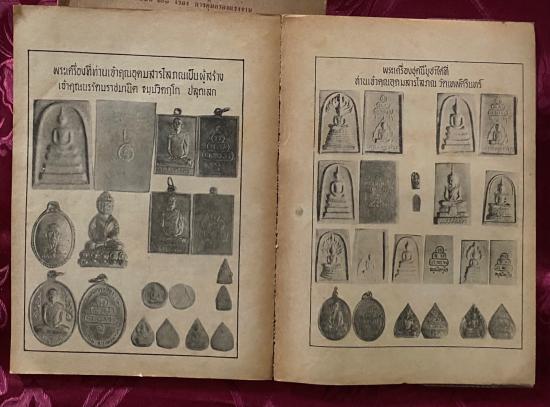 พระเครื่องที่ท่านเจ้าคุณอุดมสารโสภณเป็นผู้สร้าง
เจ้าคุณนรรัตนราชมานิต ธมฺมวิตกฺโก ปลุกเสก
พระเครื่องชุดนี้บูชาได้ที่
ท่านเจ้าคุณอุดมสารโสภณ วัดเทพศิรินทร์